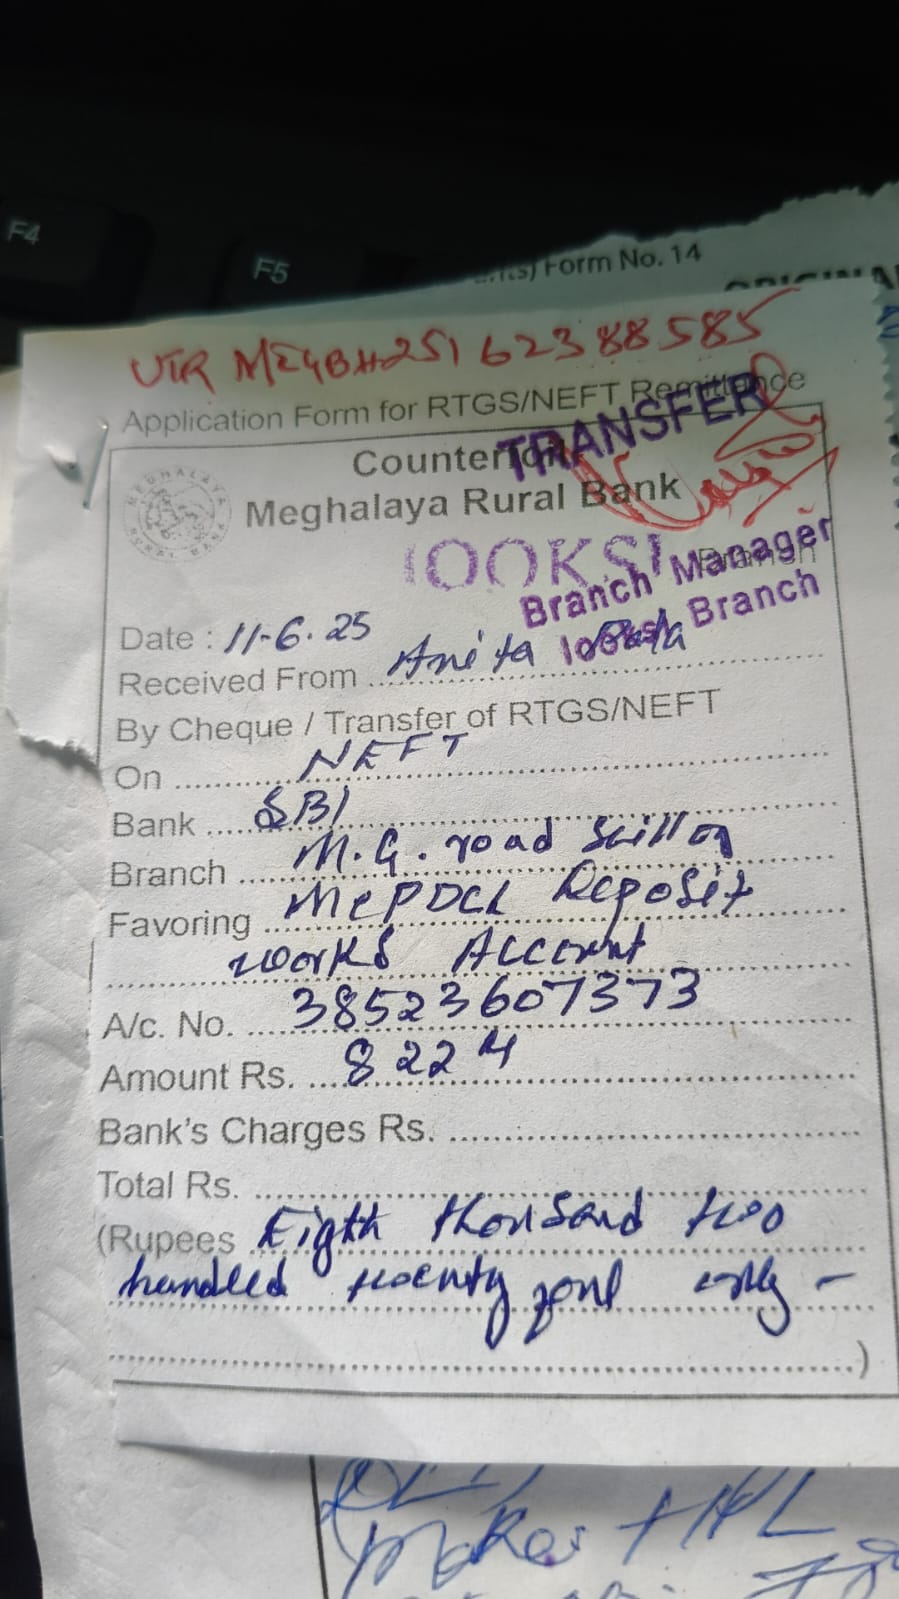 F4
F5
Form No. 14
ORIGINAL
UTR MEGBH25162388585
Application Form for RTGS/NEFT Remittance
TRANSFER
Counterfoil
MEGHALAYA RURAL BANK
Meghalaya Rural Bank
IOOKSI Branch
Branch Manager
Iooksi Branch
Date : 11-6.25
Received From Anita
By Cheque / Transfer of RTGS/NEFT
On NEFT
Bank SBI
Branch M.G. road Scillon
Favoring MePDCL Deposit
works Account
A/c. No. 38523607373
Amount Rs. 8224
Bank's Charges Rs.
Total Rs.
(Rupees Eigth thousand two
handled twenty four only -
)